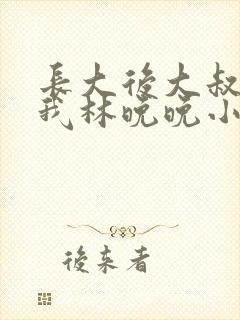 長大後大叔
我林晚晚小
後来者